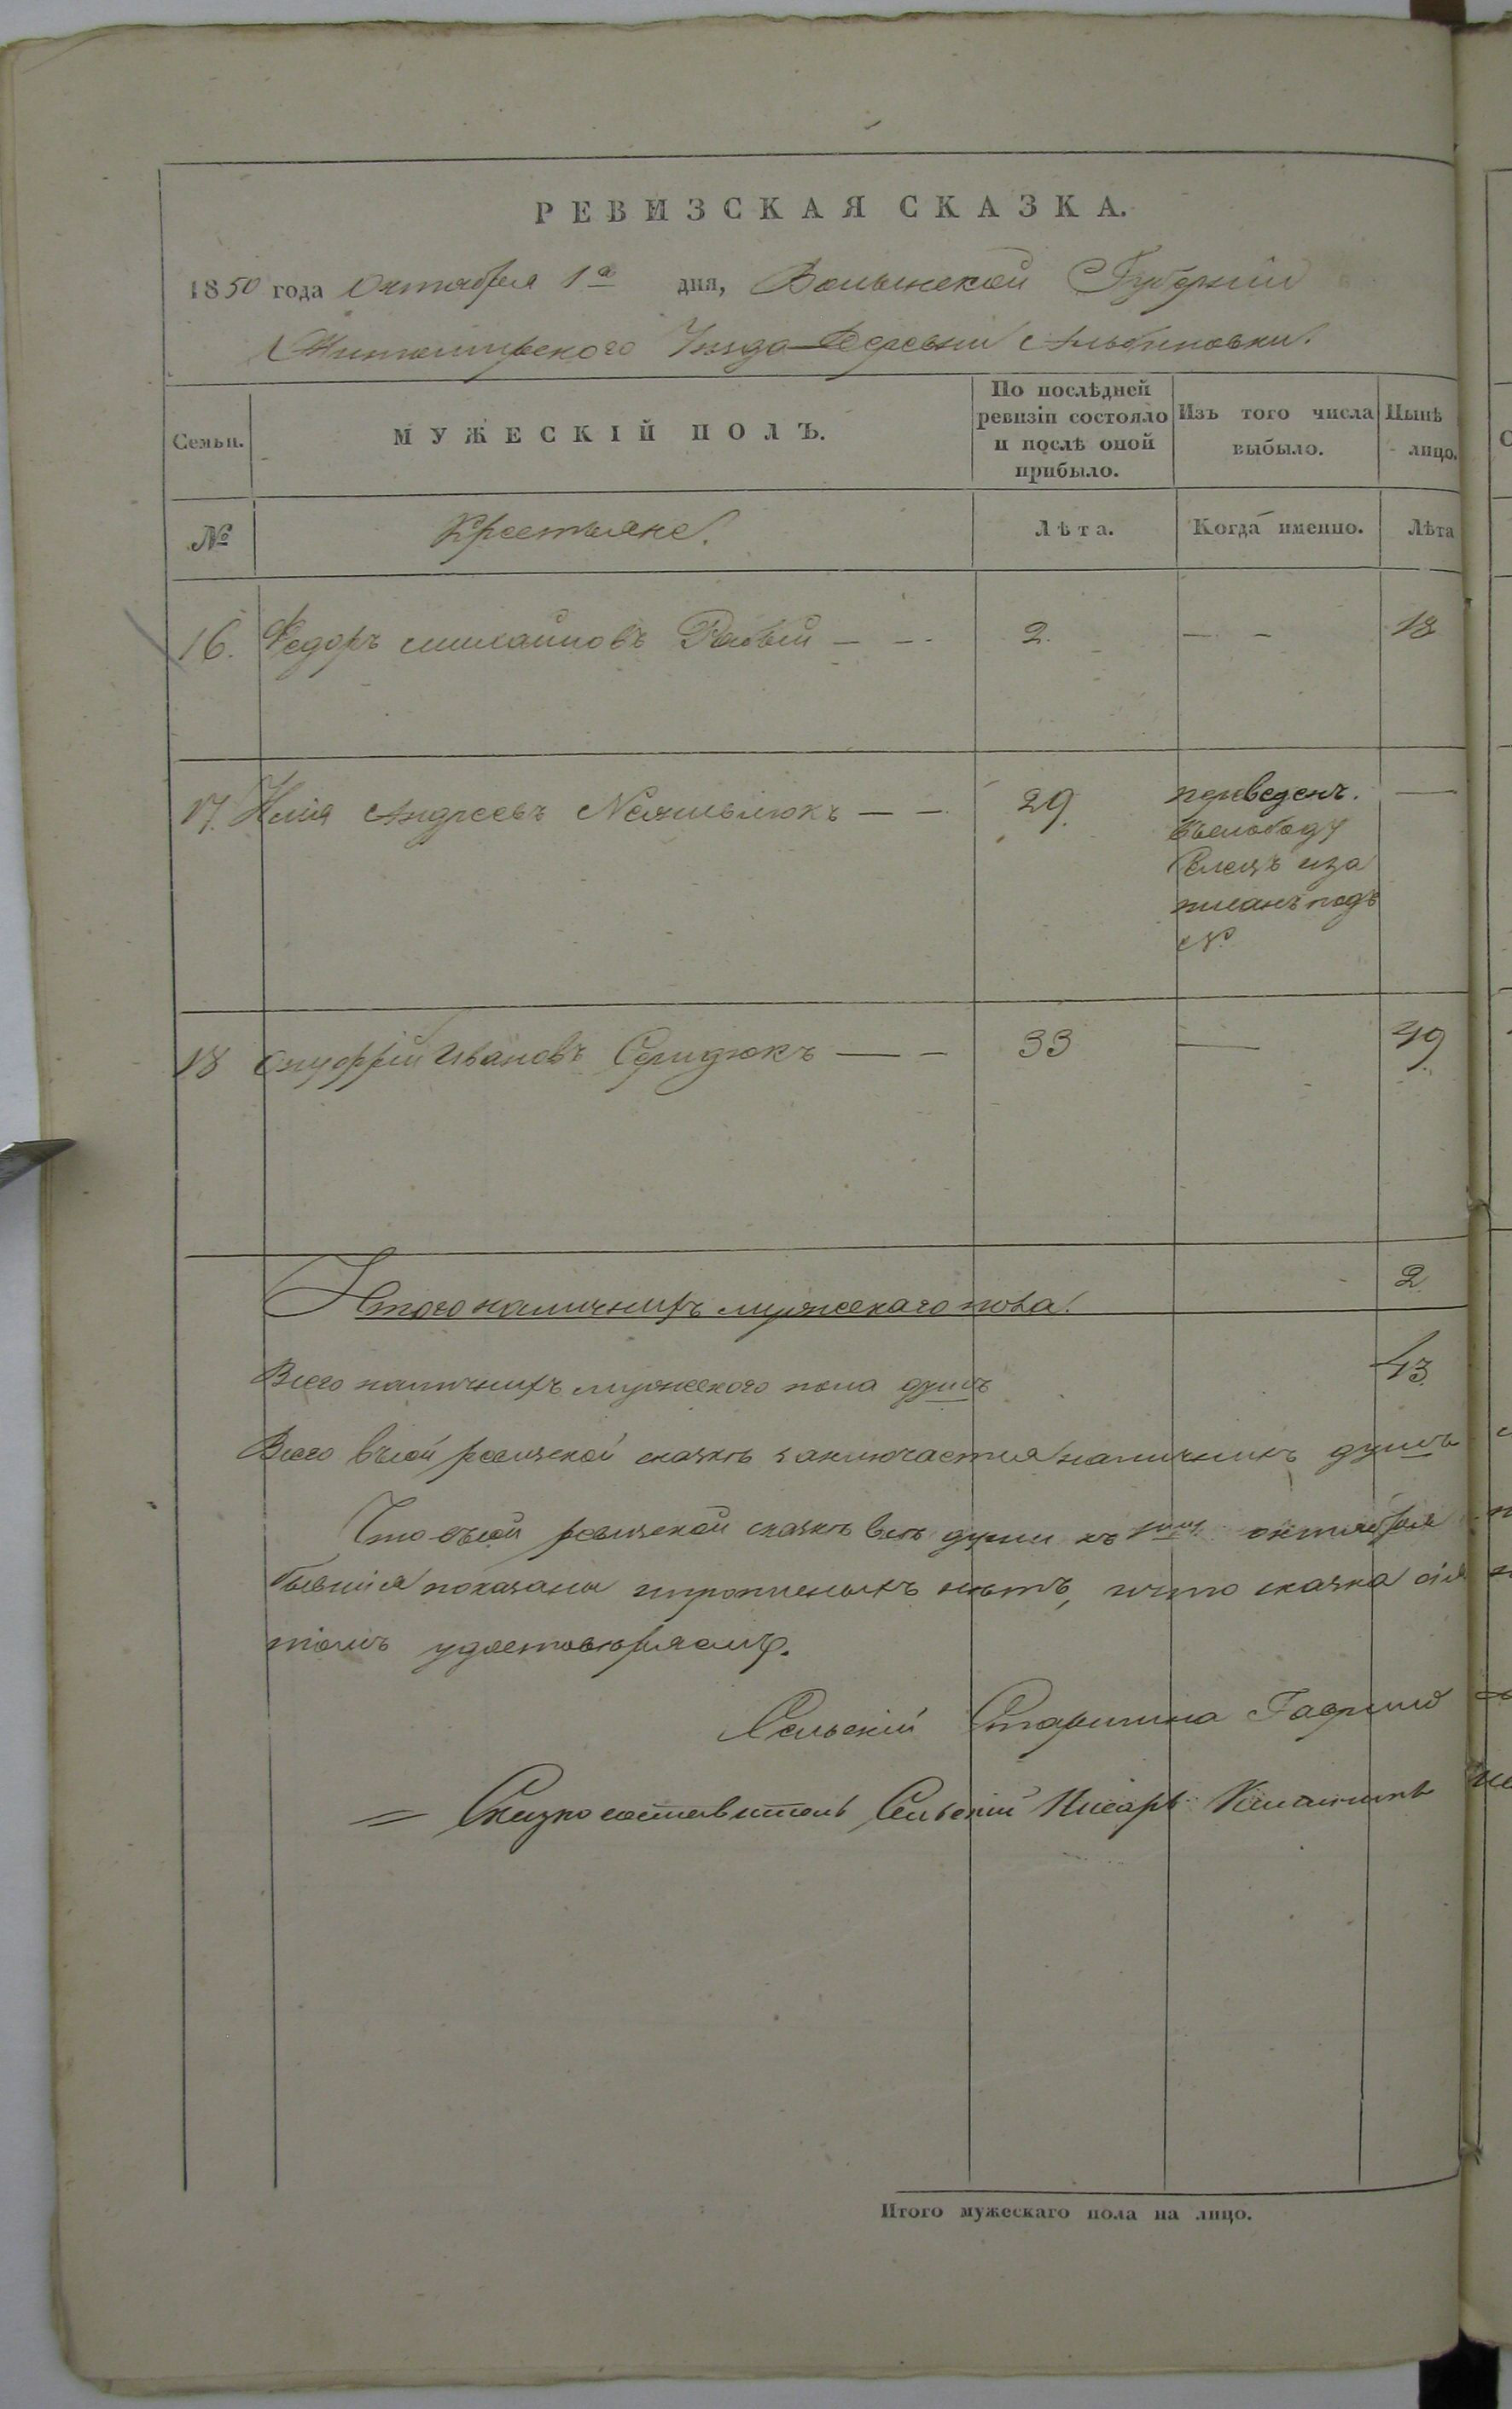 РЕВИЗСКАЯ СКАЗКА.
1850 года Октября 1го дня, Волынской Губернiи
Житомирского Уезда Деревни Альбиновки.
Семьи.
МУЖЕСКIЙ ПОЛЪ.
По послѣдней ревизiи состояло и послѣ оной прибыло.
Изъ того числа выбыло.
Нынѣ лицо.
№
Крестьяне.
Лѣта.
Когда именно.
Лѣта
16. Федоръ Михайловъ Рабый — — 2. — — 18
17. Илiя Андреевъ — — 29. переведенъ. —
въ слободу
писанъ подъ
№
18 Онуфрiй Ивановъ Середюкъ — — 33 — 49
Итого наличныхъ мужескаго пола. 2
Всего наличныхъ мужеского пола душъ 43.
Всего въ сей ревизской сказкѣ заключается наличныхъ душъ
Что въ сей ревизской сказкѣ всѣ души къ октября
бывшiя показаны и прописныхъ нѣтъ, и что сказка сiя
удостовѣряемъ.
Сельскiй Старшина
Сказкосоставитель Сельскiй Писарь
Итого мужескаго пола на лицо.